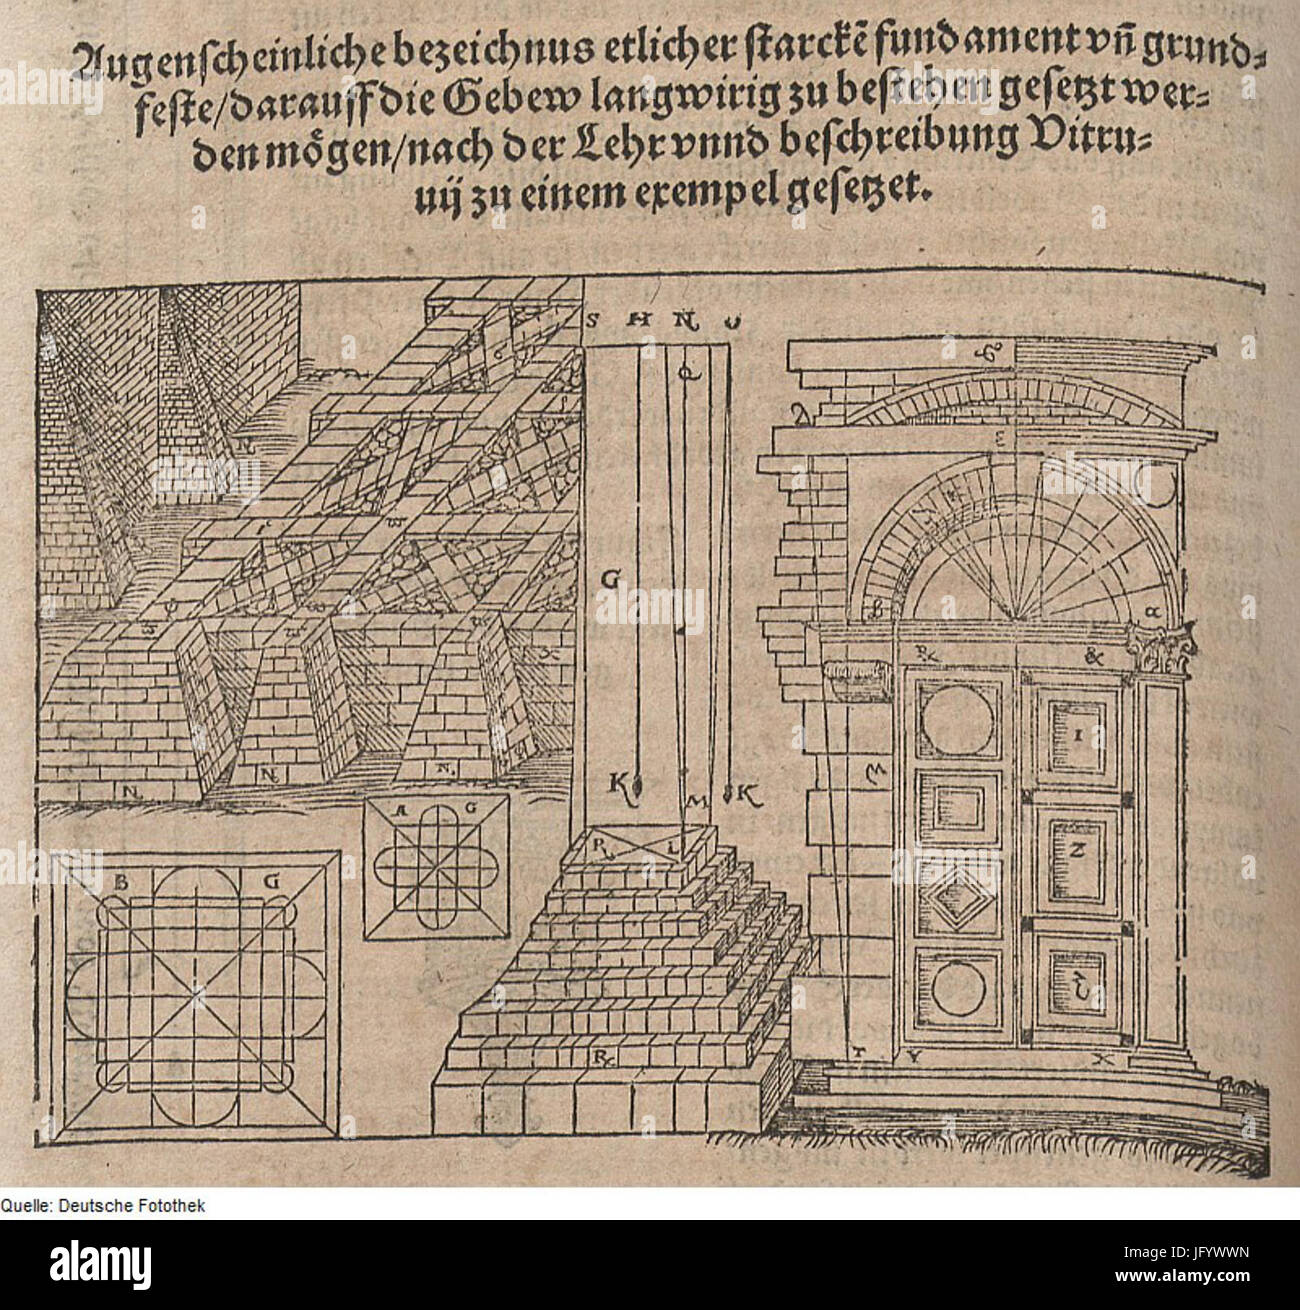 Augenscheinliche bezeichnus etlicher starckẽ fundament vñ grund⸗
feste/darauff die Gebew langwirig zu bestehen gesetzt wer⸗
den mögen/nach der Lehr vnnd beschreibung Vitru⸗
uij zu einem exempel gesetzet.
S H N U
Q
G
K M K
P L
A G
B G
N N N
E
B a
R &
1
M
2
3
T Y X
R
Quelle: Deutsche Fotothek
alamy
Image ID: JFYWWN
www.alamy.com